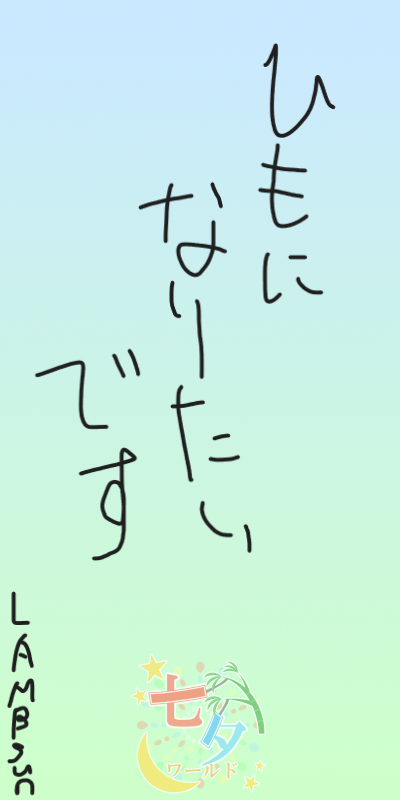 ひもに
なりたい
です
LAMBSUN
七夕
ワールド